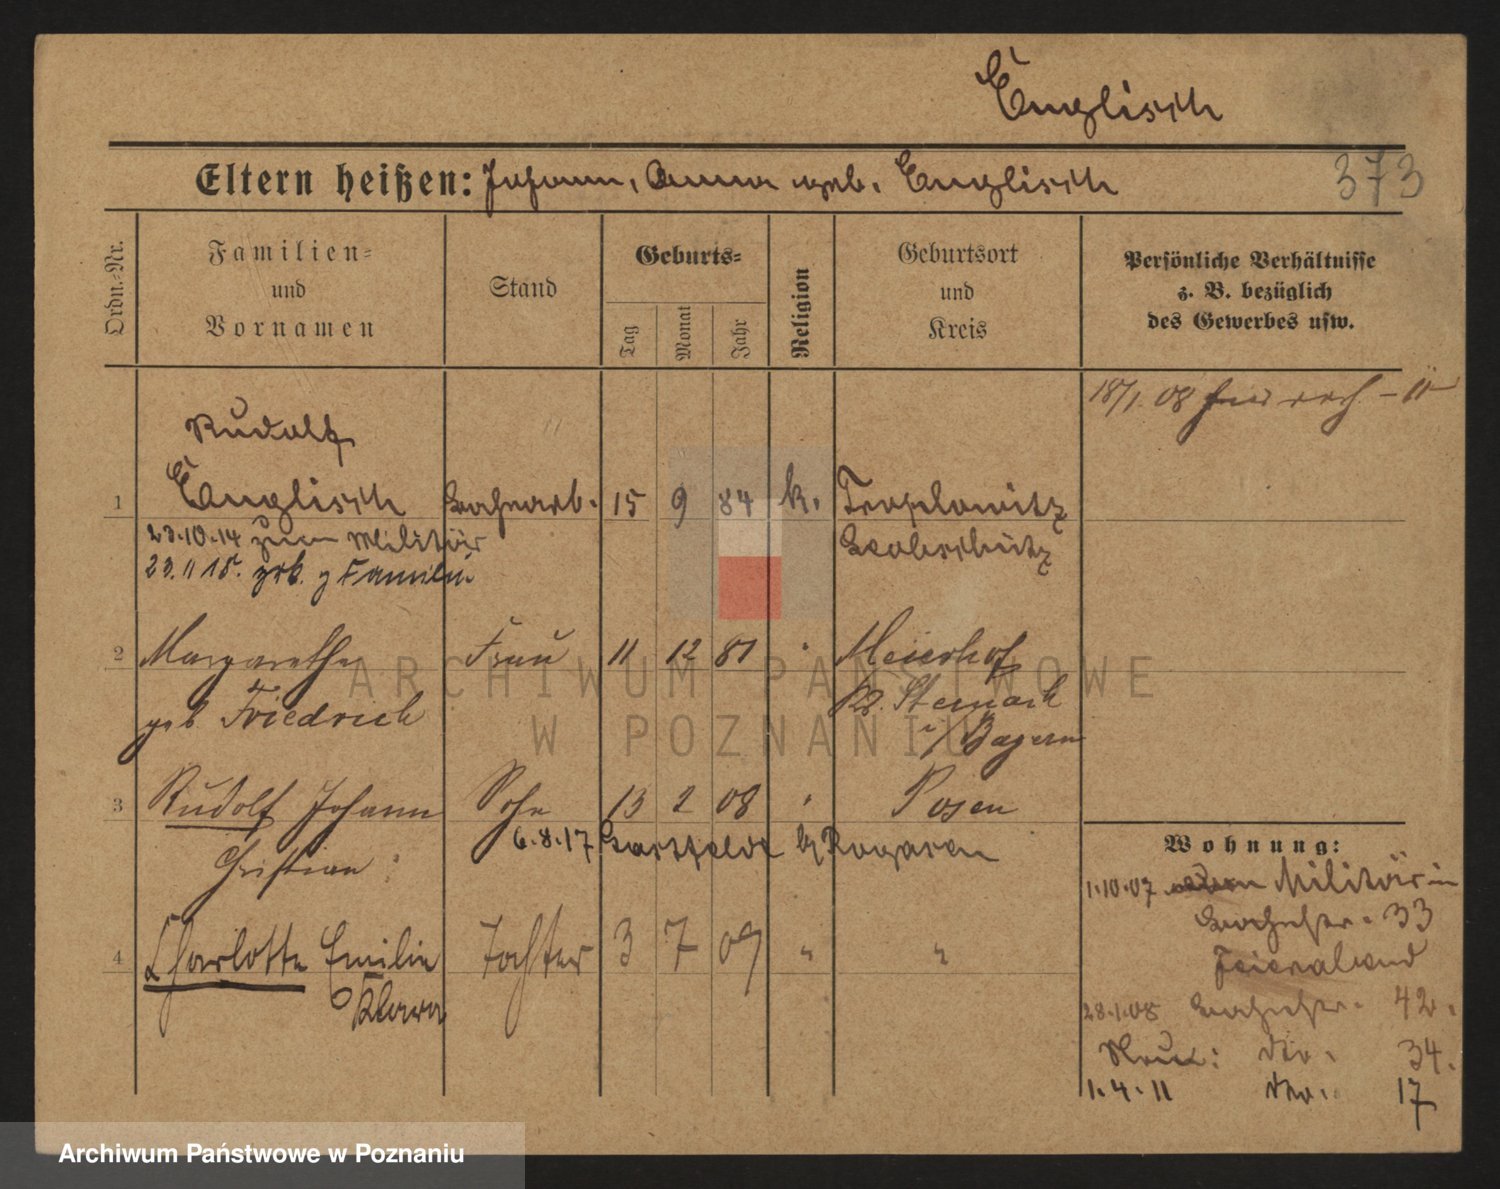 Englisch
Eltern heißen: Johann, Anna geb. Englisch
373
Ordn.-Nr.
Familien=
und
Vornamen
Stand
Geburts=
Tag
Monat
Jahr
Religion
Geburtsort
und
Kreis
Persönliche Verhältnisse
z. B. bezüglich
des Gewerbes usw.
18/1. 08
Rudolf
1 Englisch Bahnarb. 15 9 84 k. Troplowitz
23.10.14 zum Militär Leobschütz
23.11 15. zrk. z Familie
2 Margarethe Frau 11 12 81 " Meierhof
geb. Friedrich Kr. Steinach
i/Bayern
3 Rudolf Johann Sohn 13 2 08 " Posen
6.8.17 b/ Rogasen
Christian
4 Charlotte Emilie Tochter 3 7 09 " "
Klara
Wohnung:
1.10.07 Militär in
33
Feierabend
28.1.08 42.
Neue: dto. 34.
1.4.11 dto. 17
ARCHIWUM PAŃSTWOWE
W POZNANIU
Archiwum Państwowe w Poznaniu